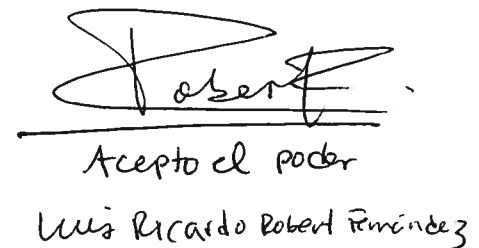 Robert F.
Acepto el poder
Luis Ricardo Robert Fernández